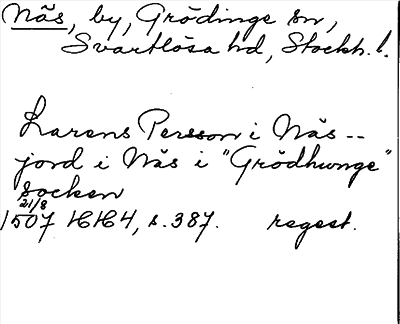 Näs, by, Grödinge sn,
Svartlösa hd, Stockh. l.
Larens Persson i Näs --
jord i Näs i "Grödhunge"
socken
21/8
1507 HH4, s. 387. regest.